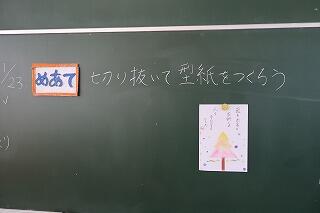 1/23
めあて 切り抜いて型紙をつくろう